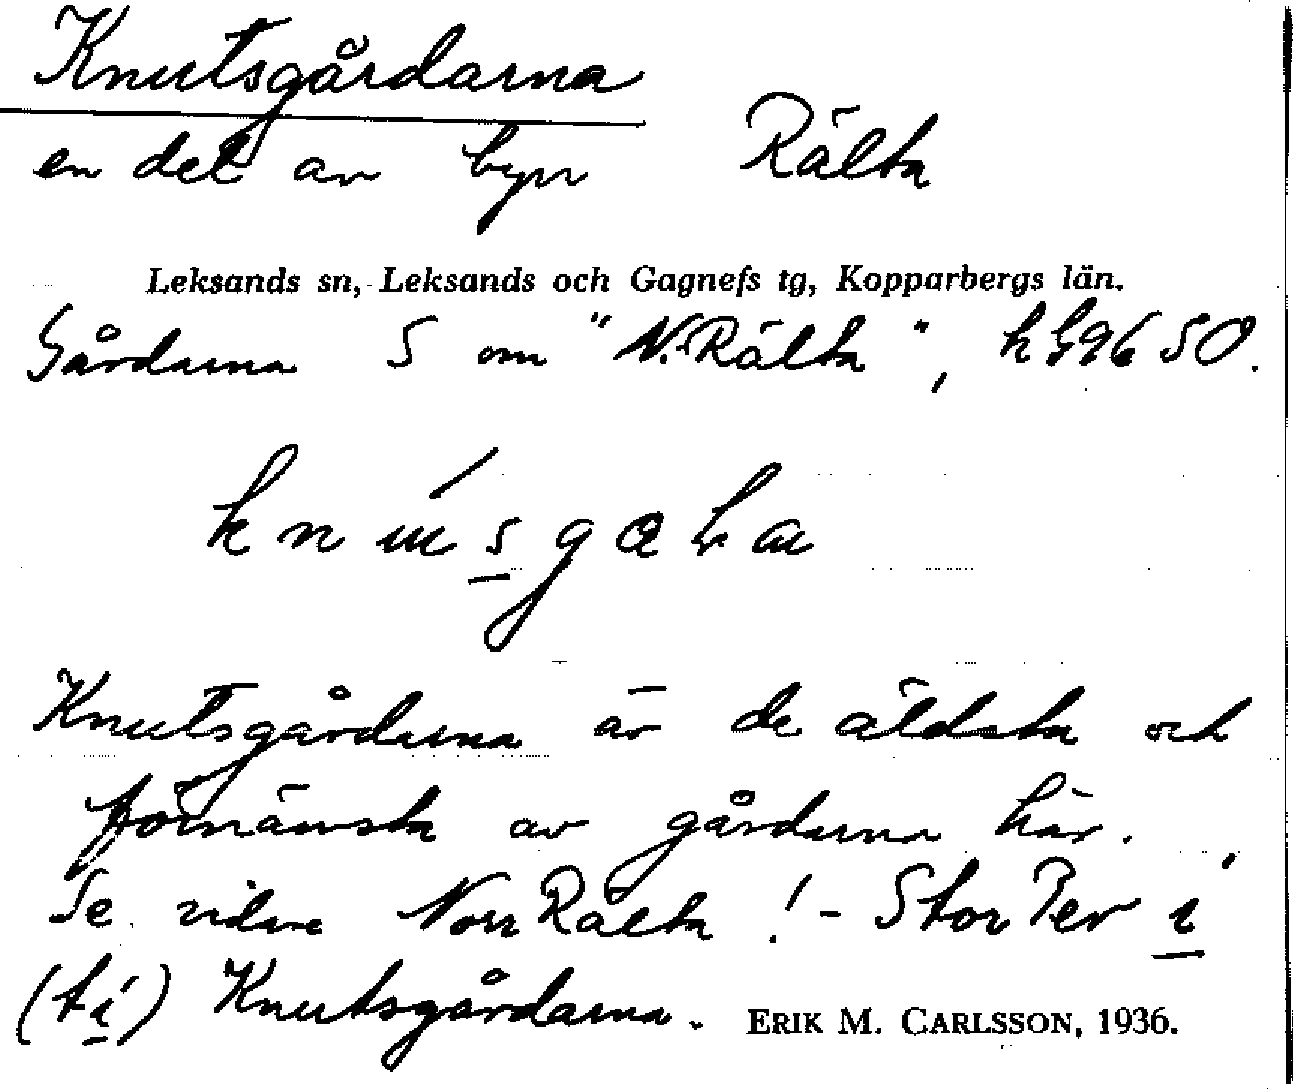 Knutsgårdarna
en del av byn Rälta
Leksands sn, Leksands och Gagnefs tg, Kopparbergs län.
Gårdarna S om "N. Rälta",
Knutsgårdarna är de äldsta och
förnämsta av gårdarna här.
Se vidare Norr Rälta! - Stor Per i
(ti) Knutsgårdarna.
ERIK M. CARLSSON, 1936.